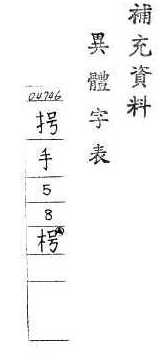 補充資料
異體字表
04746
手
5
8
枵